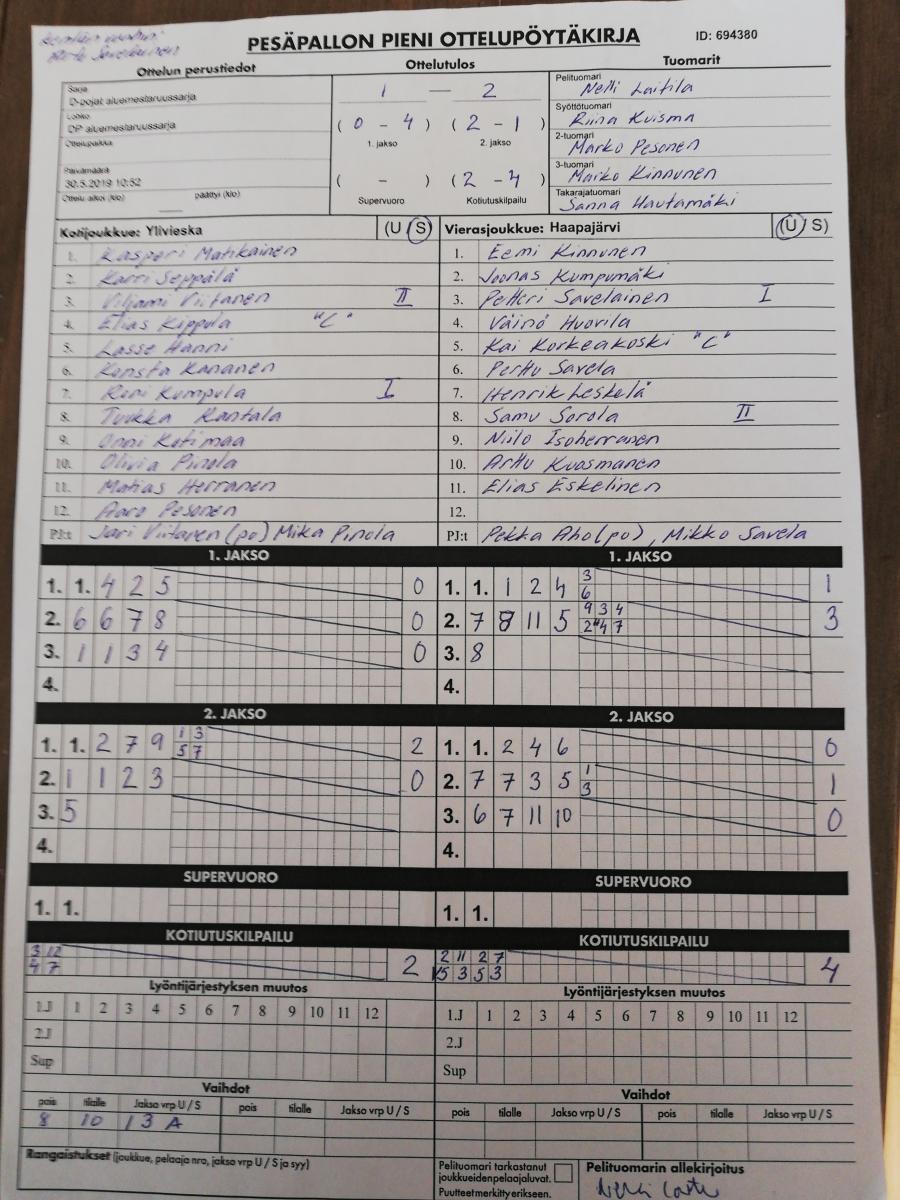 PESÄPALLON PIENI OTTELUPÖYTÄKIRJA
ID: 694380
Ottelun perustiedot
Sarja
D-pojat aluemestaruussarja
Lohko
DP aluemestaruussarja
Ottelupaikka
Päivämäärä
30.5.2019 10:52
Ottelu alkoi (klo) päättyi (klo)
Ottelutulos
1 — 2
( 0 - 4 ) ( 2 - 1 )
1. jakso 2. jakso
( - ) ( 2 - 4 )
Supervuoro Kotiutuskilpailu
Tuomarit
Pelituomari
Nelli Laitila
Syöttötuomari
Riina Kuisma
2-tuomari
Marko Pesonen
3-tuomari
Marko Kinnunen
Takarajatuomari
Sanna Hautamäki
Kotijoukkue: Ylivieska (U / S)
1. Kasperi Matikainen
2. Karri Seppälä
3. Viljami Viitanen II
4. Elias Kippola "C"
5. Lasse Hänni
6. Konsta Kananen
7. Roni Kumpula I
8. Tuukka Rantala
9. Onni Kotimaa
10. Olivia Pinola
11. Matias Herranen
12. Aaro Pesonen
PJ:t Jari Viitanen (po) Mika Pinola
Vierasjoukkue: Haapajärvi (U / S)
1. Eemi Kinnunen
2. Joonas Kumpumäki
3. Petteri Savelainen I
4. Väinö Huovila
5. Kai Korkeakoski "C"
6. Perttu Savela
7. Henrik Leskelä
8. Samu Sorola II
9. Niilo Isoherranen
10. Arttu Kuosmanen
11. Elias Eskelinen
12.
PJ:t Pekka Aho (po), Mikko Savela
1. JAKSO
1. 1. 4 2 5 0
2. 6 6 7 8 0
3. 1 1 3 4 0
4.
1. JAKSO
1. 1. 1 2 4 3 6 1
2. 7 8 11 5 9 3 4 3
2 4 7
3. 8
4.
2. JAKSO
1. 1. 2 7 9 1 3 2
5 7
2. 1 1 2 3 0
3. 5
4.
2. JAKSO
1. 1. 2 4 6 0
2. 7 7 3 5 1 3 1
3. 6 7 11 10 0
4.
SUPERVUORO
1. 1.
SUPERVUORO
1. 1.
KOTIUTUSKILPAILU
3 12
4 7 2
KOTIUTUSKILPAILU
2 11 2 7
5 3 5 3 4
Lyöntijärjestyksen muutos
1.J 1 2 3 4 5 6 7 8 9 10 11 12
2.J
Sup
Lyöntijärjestyksen muutos
1.J 1 2 3 4 5 6 7 8 9 10 11 12
2.J
Sup
Vaihdot
pois tilalle Jakso vrp U / S pois tilalle Jakso vrp U / S
8 10 1 3 A
Vaihdot
pois tilalle Jakso vrp U / S pois tilalle Jakso vrp U / S
Rangaistukset (joukkue, pelaaja nro, jakso vrp U / S ja syy)
Pelituomari tarkastanut
joukkueidenpelaajaluvat.
Puutteet merkitty erikseen.
Pelituomarin allekirjoitus